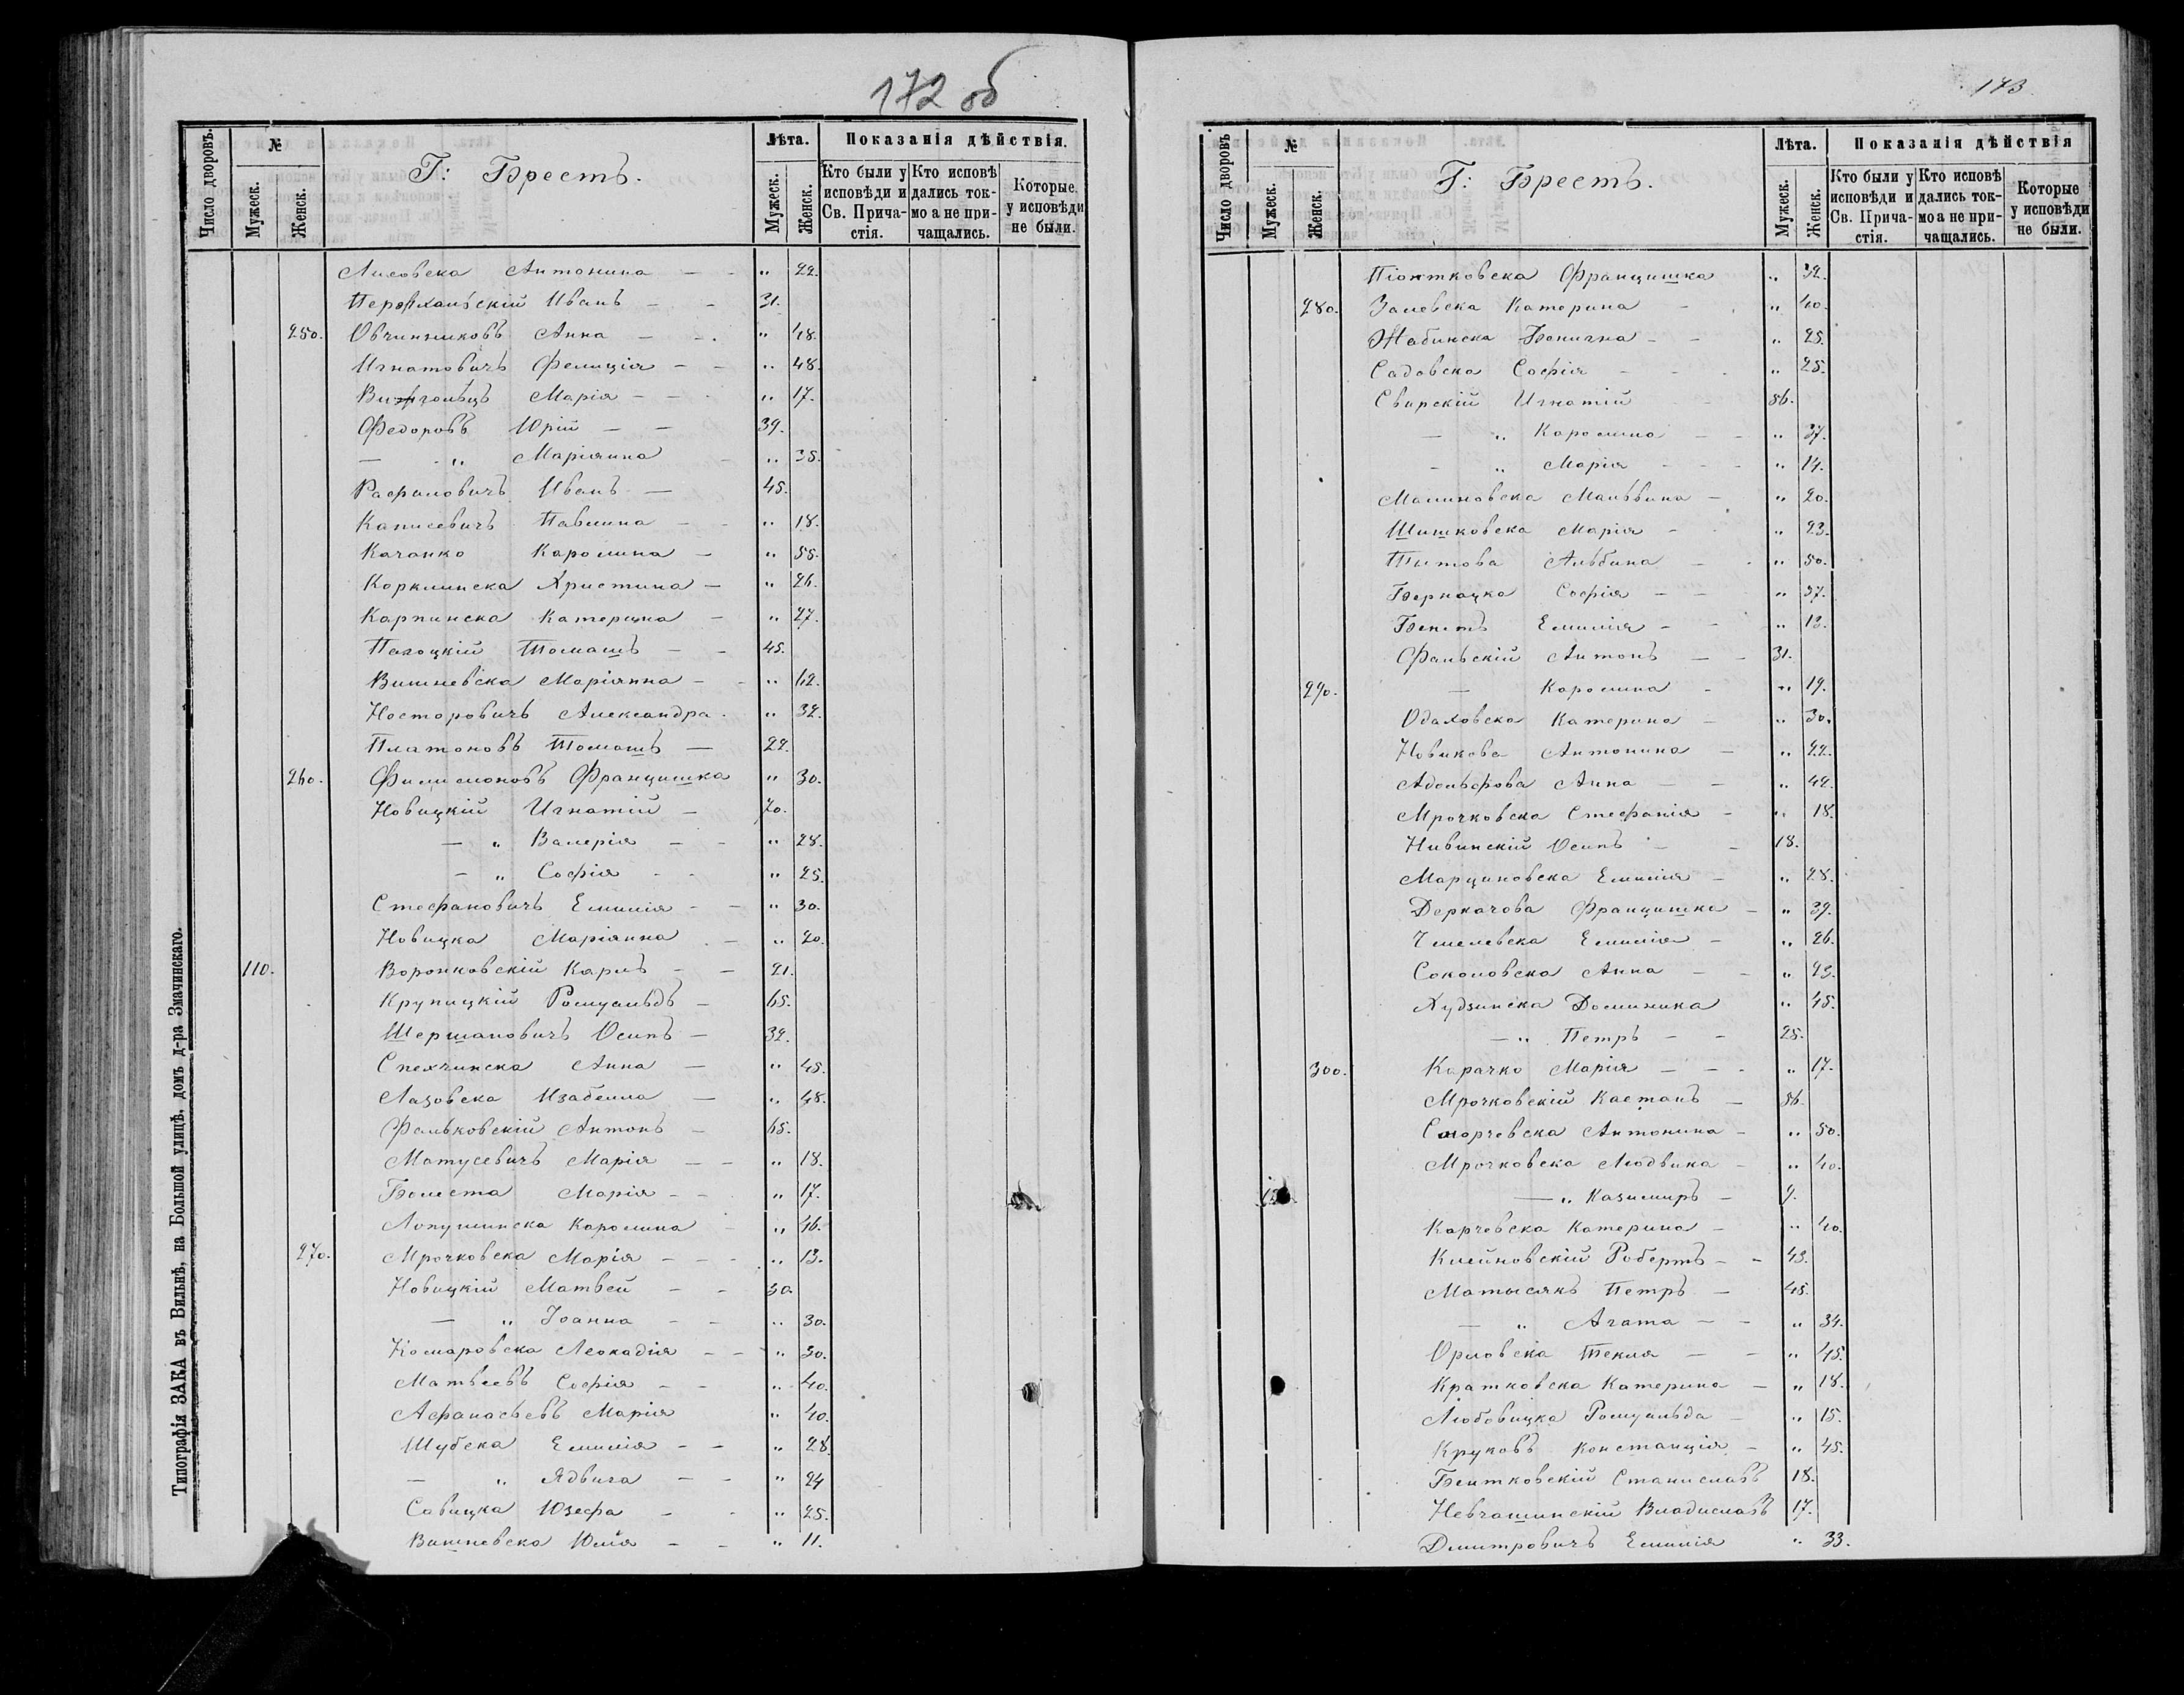 172 об
Число дворовъ.
№
Мужеск.
Женск.
Г: Брестъ.
Лѣта.
Мужеск.
Женск.
Показанія дѣйствія.
Кто были у исповѣди и Св. Прича-стія.
Кто исповѣ дались ток-мо а не при-чащались.
Которые у исповѣди не были.
Лисовска Антонина — „ 22.
Иванъ — — 31.
250. Овчинниковъ Анна — — „ 48.
Игнатовичъ Фелиція — — „ 48.
Марія — — „ 17.
Федоровъ Юрій — — 39.
— „ Маріянна — „ 35.
Рафаловичъ Иванъ — 45.
Каписевичъ Павлина — „ 18.
Качанко Каролина — „ 55.
Корклинска Христина — „ 26.
Карпинска Катерина — „ 27.
Палоцкій Томашъ — — 45.
Вишневска Маріянна — „ 62.
Несторовичъ Александра. „ 32.
Платоновъ Томашъ — 22.
260. Филимоновъ Францишка „ 30.
Новицкій Игнатій — 70.
— „ Валерія — — „ 28.
— „ Софія — — „ 25.
Стефановичъ Емилія — — „ 30.
Новицка Маріянна — „ 20.
110. Воронковскій Карлъ — — 21.
Крупицкій Ромуальдъ — 65.
Шершановичъ Осипъ — 32.
Спехчинска Анна — „ 45.
Лазовска Изабелла — „ 48.
Фальковскій Антонъ — 65.
Матусевичъ Марія — — „ 18.
Болеста Марія — — „ 17.
Лопушинска Каролина „ 46.
270. Мрочковска Марія — — „ 13.
Новицкій Матвей — — 30.
— „ Іоанна — — „ 30.
Комаровска Леокадія — — „ 30.
Матвеевъ Софія — — „ 40.
Афанасьевъ Марія „ 40.
Шубска Емилія — — „ 28.
— „ Ядвига — — „ 24
Савицка Юзефа — — „ 25.
Вишневска Юлія — — „ 11.
Типографія ЗАКА въ Вильнѣ, на Большой улицѣ, домъ д-ра Змачинскаго.
173.
Число дворовъ
№
Мужеск.
Женск.
Г: Брестъ.
Лѣта.
Мужеск.
Женск.
Показанія дѣйствія
Кто были у исповѣди и Св. Прича-стія.
Кто исповѣ дались ток-мо а не при-чащались.
Которые у исповѣди не были.
Піонтковска Францишка „ 32.
280. Залевска Катерина — „ 40.
Жабинска Бенигна — — „ 25.
Садовска Софія — — „ 25.
Свирскій Игнатій 56.
— „ Каролина — — „ 37.
— „ Марія — — — „ 14.
Малиновска Мальвина — „ 20.
Шишковска Марія — „ 23.
Титова Альбина — „ 50.
Бернацка Софія — — „ 37.
Емилія — — „ 13.
Фальскій Антонъ — — 31.
290. — Каролина — „ 19.
Одаховска Катерина — „ 30.
Новикова Антонина — „ 22.
Адольфова Анна — — „ 42.
Мрочковска Стефанія — „ 18.
Нивинскій Осипъ — — 18.
Марциновска Емилія — „ 28.
Деркачова Францишка — „ 39.
Хмелевска Емилія — „ 26.
Соколовска Анна — — „ 23.
Худзинска Доминика „ 45.
— „ Петръ — — 25.
300. Карачко Марія — — „ 17.
Мрочковскій Каетанъ — 56.
Антонина — „ 50.
Мрочковска Людвика — „ 40.
— „ Казимиръ — 9.
Карчевска Катерина — „ 40.
Клейновскій Робертъ — — 43.
Матысякъ Петръ — 45.
— „ Агата — — „ 34.
Орловска Текля — — „ 45.
Кратковска Катерина — „ 18.
Любовицка Ромуальда — „ 15.
Круковъ Констанція — „ 45.
Бентковскій Станиславъ 18.
Невчашинскій Владиславъ 17.
Дмитровичъ Емилія „ 33.